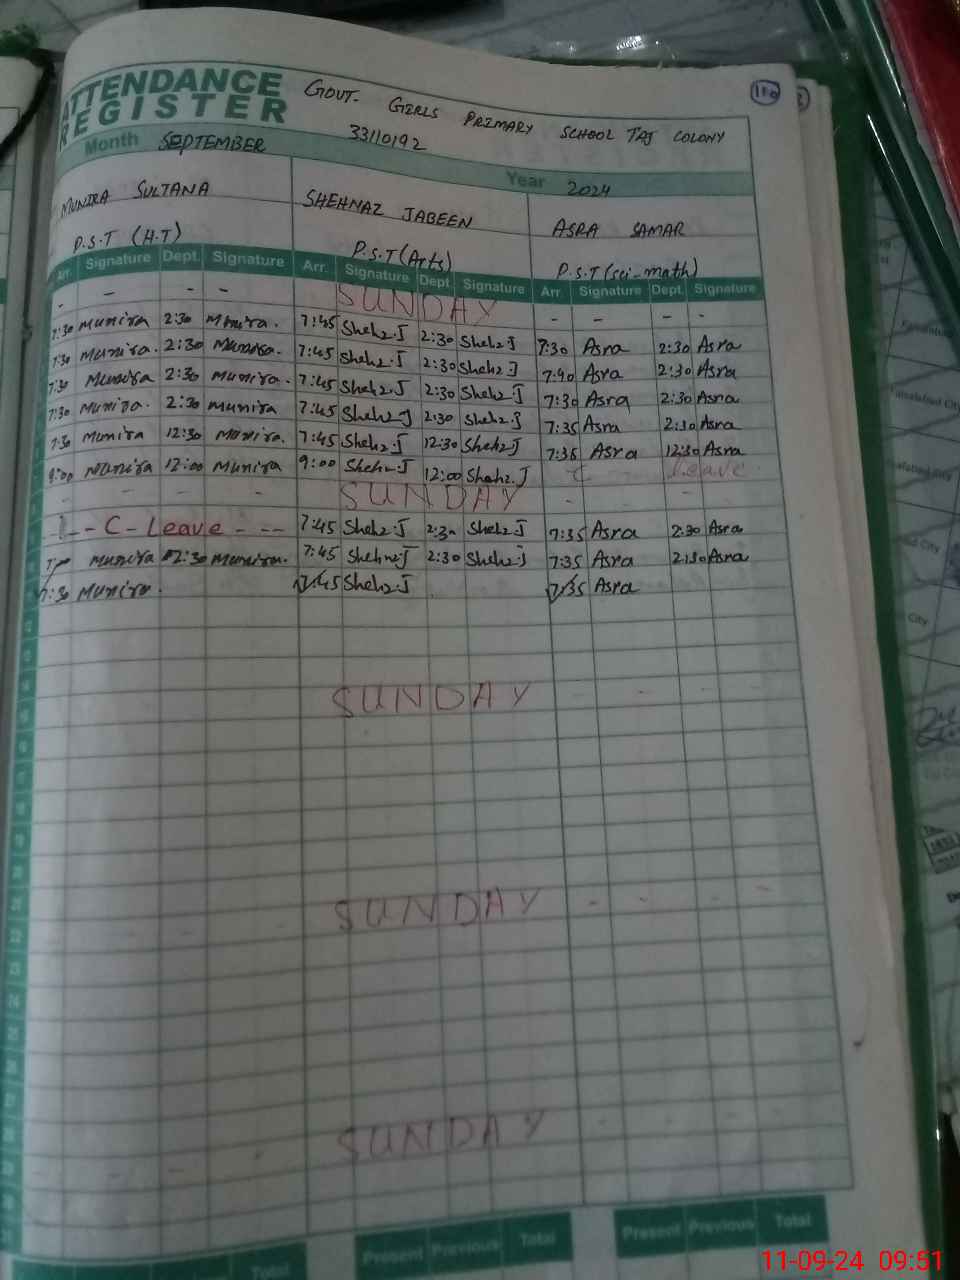 ATTENDANCE REGISTER
GOVT. GIRLS PRIMARY SCHOOL TAJ COLONY
33110192
110
Month SEPTEMBER
Year 2024
MUNIRA SULTANA SHEHNAZ JABEEN ASRA SAMAR
P.S.T (H.T) P.S.T (Arts) P.S.T (sci-math)
Arr. Signature Dept. Signature Arr. Signature Dept. Signature Arr. Signature Dept. Signature
- - - - SUNDAY - - - -
7:30 Munira 2:30 Munira. 7:45 Shehz.J 2:30 Shehz.J 7:30 Asra 2:30 Asra
7:30 Munira. 2:30 Munira. 7:45 Shehz.J 2:30 Shehz.J 7:40 Asra 2:30 Asra
7:30 Munira 2:30 Munira. 7:45 Shehz.J 2:30 Shehz.J 7:30 Asra 2:30 Asra
7:30 Munira. 2:30 Munira 7:45 Shehz.J 2:30 Shehz.J 7:35 Asra 2:30 Asra
7:30 Munira 12:30 Munira. 7:45 Shehz.J 12:30 Shehz.J 7:35 Asra 12:30 Asra
9:00 Munira 12:00 Munira 9:00 Shehz.J 12:00 Shehz.J C Leave
- - - - SUNDAY - -
- C - Leave - - - 7:45 Shehz.J 2:30 Shehz.J 7:35 Asra 2:30 Asra
Munira 2:30 Munira. 7:45 Shehz.J 2:30 Shehz.J 7:35 Asra 2:30 Asra
7:30 Munira. 7:45 Shehz.J 7:35 Asra
12
13
14
SUNDAY - - - -
15
16
17
18
19
20
21
SUNDAY - - - -
22
23
24
25
26
27
28
SUNDAY
29
30
31
Total Present Previous Total Present Previous Total
11-09-24 09:51